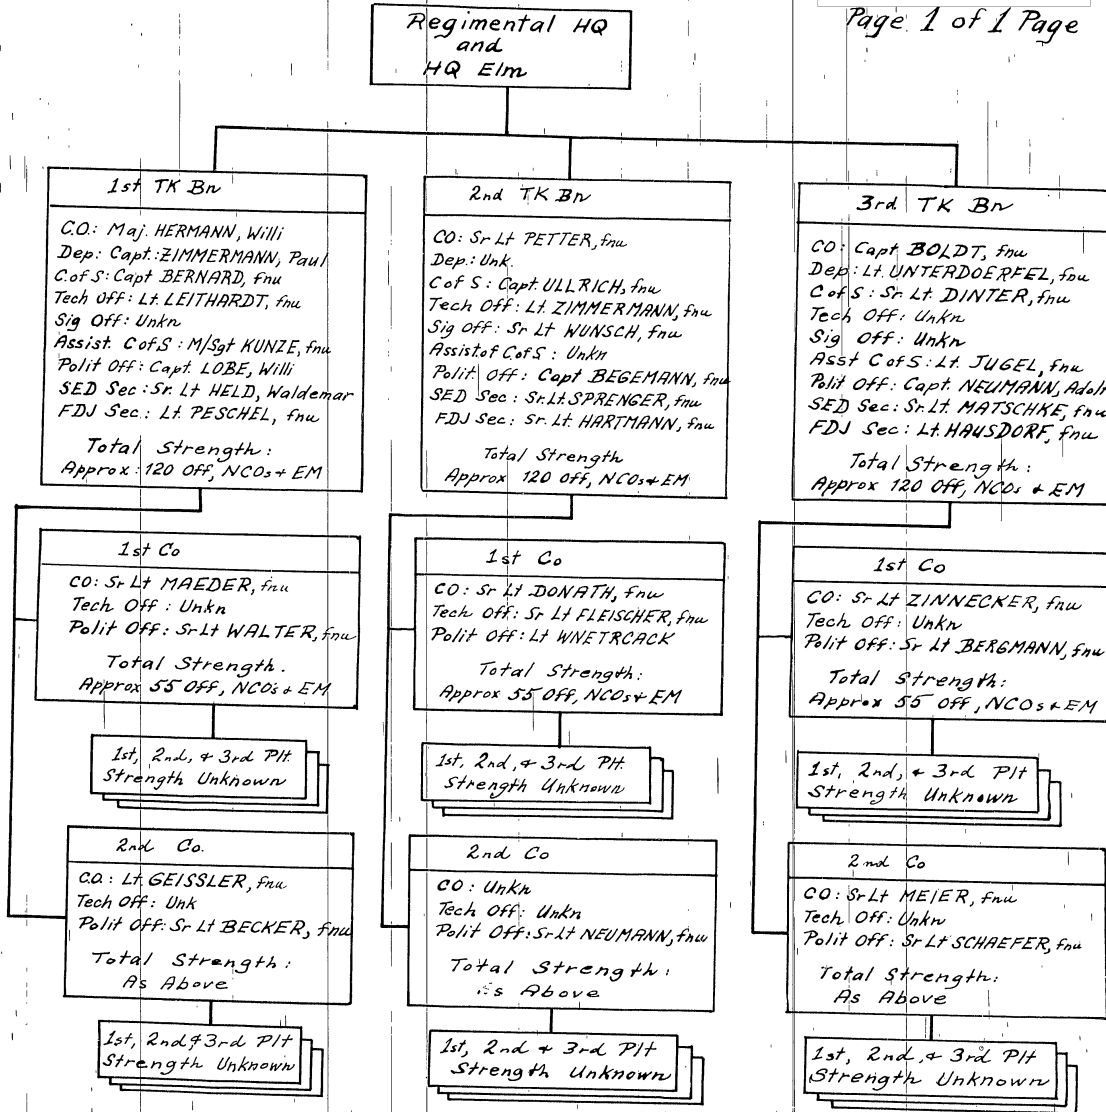 Page 1 of 1 Page
Regimental HQ
and
HQ Elm
1st TK Bn
C.O.: Maj. HERMANN, Willi
Dep.: Capt.: ZIMMERMANN, Paul
C.of S: Capt BERNARD, fnu
Tech Off: Lt. LEITHARDT, fnu
Sig Off: Unkn
Assist. C of S: M/Sgt KUNZE, fnu
Polit Off: Capt. LOBE, Willi
SED Sec: Sr. Lt HELD, Waldemar
FDJ Sec.: Lt. PESCHEL, fnu
Total Strength:
Approx: 120 Off, NCOs + EM
1st Co
CO: Sr Lt MAEDER, fnu
Tech Off: Unkn
Polit Off: Sr Lt WALTER, fnu
Total Strength.
Approx 55 Off, NCOs + EM
1st, 2nd, + 3rd Plt
Strength Unknown
2nd Co.
C.O.: Lt. GEISSLER, fnu
Tech Off: Unk
Polit Off: Sr Lt BECKER, fnu
Total Strength:
As Above
1st, 2nd + 3rd Plt
Strength Unknown
2nd TK Bn
CO: Sr Lt PETTER, fnu
Dep.: Unk.
C of S: Capt. ULLRICH, fnu
Tech Off: Lt. ZIMMERMANN, fnu
Sig Off: Sr Lt WUNSCH, fnu
Assist of C of S: Unkn
Polit. Off: Capt BEGEMANN, fnu
SED Sec: Sr. Lt. SPRENGER, fnu
FDJ Sec: Sr. Lt. HARTMANN, fnu
Total Strength
Approx 120 Off, NCOs + EM
1st Co
CO: Sr Lt DONATH, fnu
Tech Off: Sr Lt FLEISCHER, fnu
Polit Off: Lt WNETRCACK
Total Strength:
Approx 55 Off, NCOs + EM
1st, 2nd, + 3rd Plt.
Strength Unknown
2nd Co
CO: Unkn
Tech Off: Unkn
Polit Off: Sr Lt NEUMANN, fnu
Total Strength:
As Above
1st, 2nd + 3rd Plt
Strength Unknown
3rd TK Bn
CO: Capt BOLDT, fnu
Dep: Lt. UNTERDOERFEL, fnu
C of S: Sr Lt. DINTER, fnu
Tech Off: Unkn
Sig Off: Unkn
Asst C of S: Lt. JUGEL, fnu
Polit Off: Capt. NEUMANN, Adolf
SED Sec: Sr. Lt. MATSCHKE, fnu
FDJ Sec: Lt. HAUSDORF, fnu
Total Strength:
Approx 120 Off, NCOs + EM
1st Co
CO: Sr Lt ZINNECKER, fnu
Tech Off: Unkn
Polit Off: Sr Lt BERGMANN, fnu
Total Strength:
Approx 55 Off, NCOs + EM
1st, 2nd, + 3rd Plt
Strength Unknown
2nd Co
CO: Sr Lt MEIER, fnu
Tech Off: Unkn
Polit Off: Sr Lt SCHAEFER, fnu
Total Strength:
As Above
1st, 2nd, + 3rd Plt
Strength Unknown